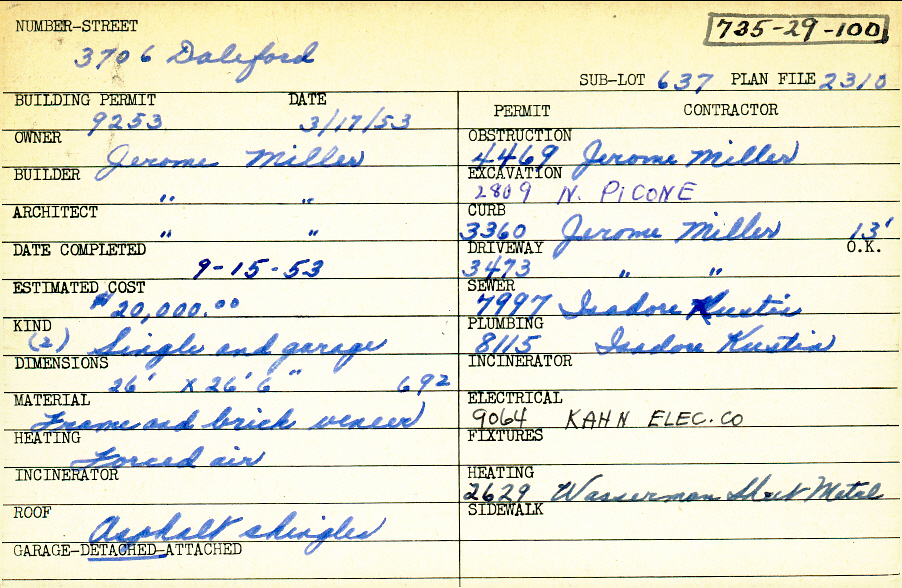 NUMBER-STREET
735-29-100
3706 Daleford
SUB-LOT 637 PLAN FILE 2310
BUILDING PERMIT DATE
9253 3/17/53
OWNER
Jerome Miller
BUILDER
" "
ARCHITECT
" "
DATE COMPLETED
9-15-53
ESTIMATED COST
$20,000.00
KIND
(2) Single and garage
DIMENSIONS
26' x 26' 6" 692
MATERIAL
Frame and brick veneer
HEATING
Forced air
INCINERATOR
ROOF
Asphalt shingles
GARAGE-DETACHED-ATTACHED
PERMIT CONTRACTOR
OBSTRUCTION
4469 Jerome Miller
EXCAVATION
2809 N. PICONE
CURB
3360 Jerome Miller 13'
DRIVEWAY O.K.
3473 " "
SEWER
7997 Isadore Kustin
PLUMBING
8115 Isadore Kustin
INCINERATOR
ELECTRICAL
9064 KAHN ELEC. CO
FIXTURES
HEATING
2629 Wasserman Sheet Metal
SIDEWALK